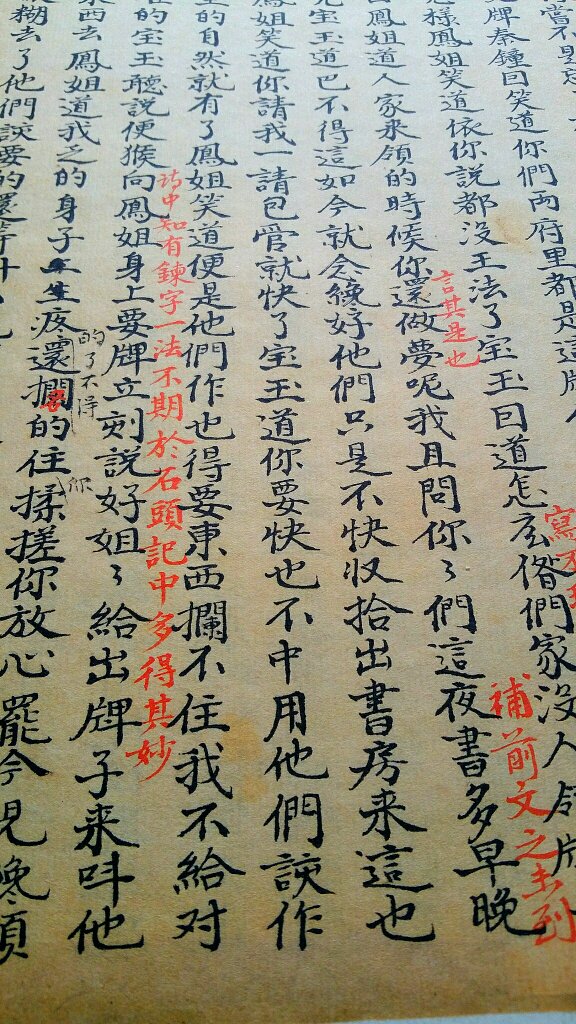 嘗不是忘
寫不
牌秦鐘回笑道你們兩府里都是這牌
補前文之未到
怎樣鳳姐笑道依你說都沒王法了宝玉回道怎庅偺們家沒人領牌
言其是也
鳳姐道人家來領的時候你還做夢呢我且問你々們這夜書多早晚
宝玉道巴不得這如今就念纔好他們只是不快收拾出書房来這也
鳳姐笑道你請我一請包管就快了宝玉道你要快也不中用他們該作
的自然就有了鳳姐笑道便是他們作也得要東西攔不住我不給对
詩中知有鍊字一法不期於石頭記中多得其妙
的宝玉聽說便猴向鳳姐身上要牌立刻說好姐々給出牌子来呌他
東西去鳳姐道我乏的身子上生疼還擱的住揉搓你放心罷今見晚領
的了不得
你
糊去了他們該要的還等